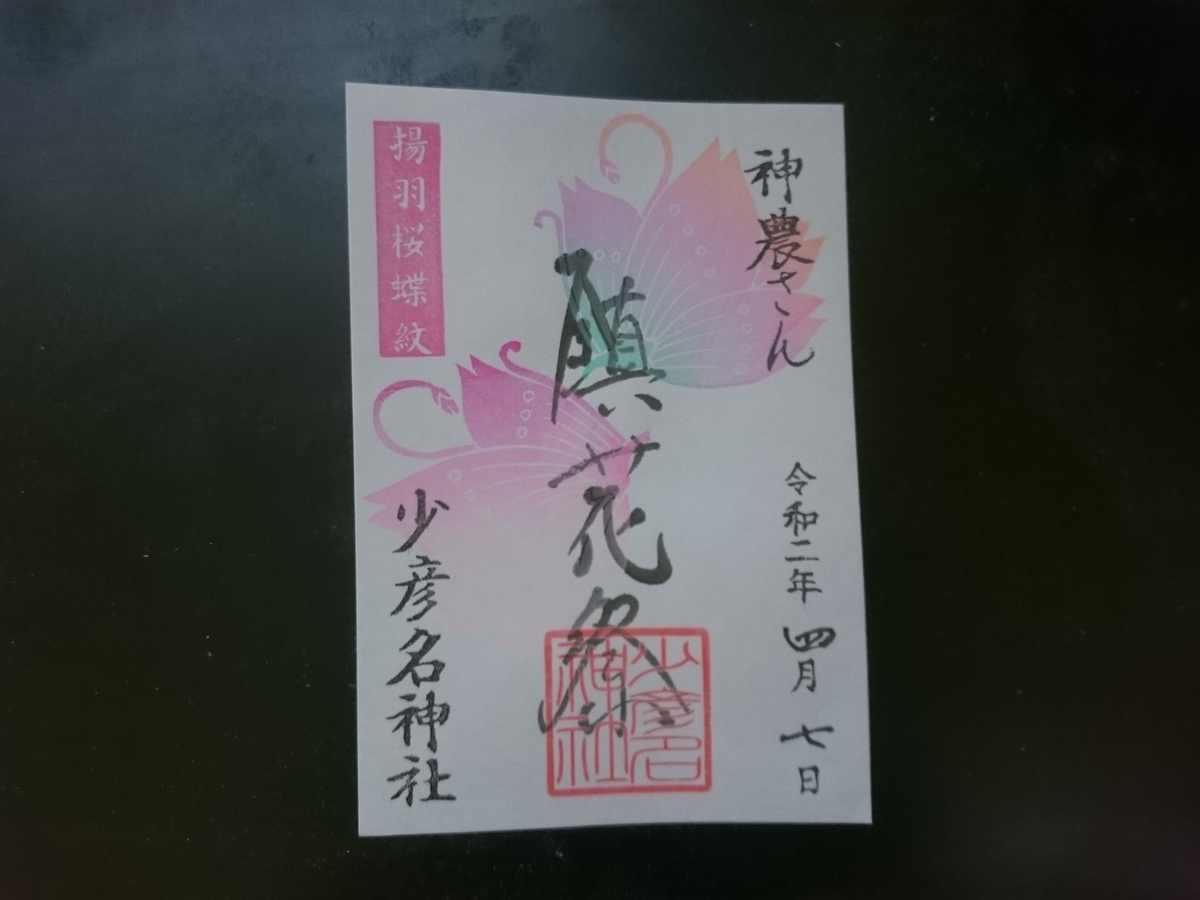 神農さん
令和二年 四月 七日
鎮花祭
少彦名
神社
揚羽桜蝶紋
少彦名神社